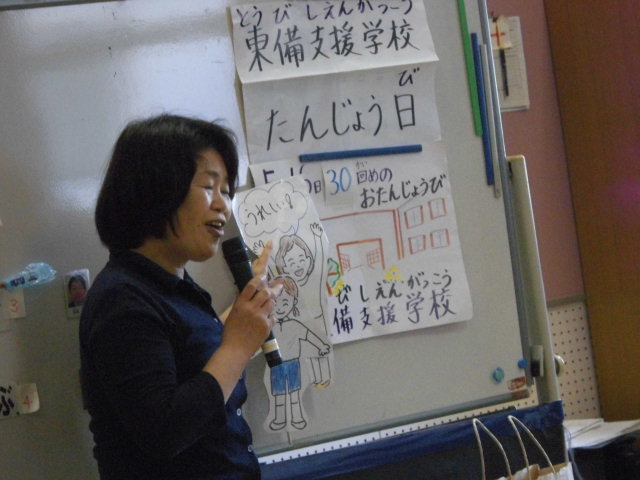 とうびしえんがっこう
東備支援学校
び
たんじょう日
30回めの
かい
おたんじょうび
うれしい
びしえんがっこう
備支援学校